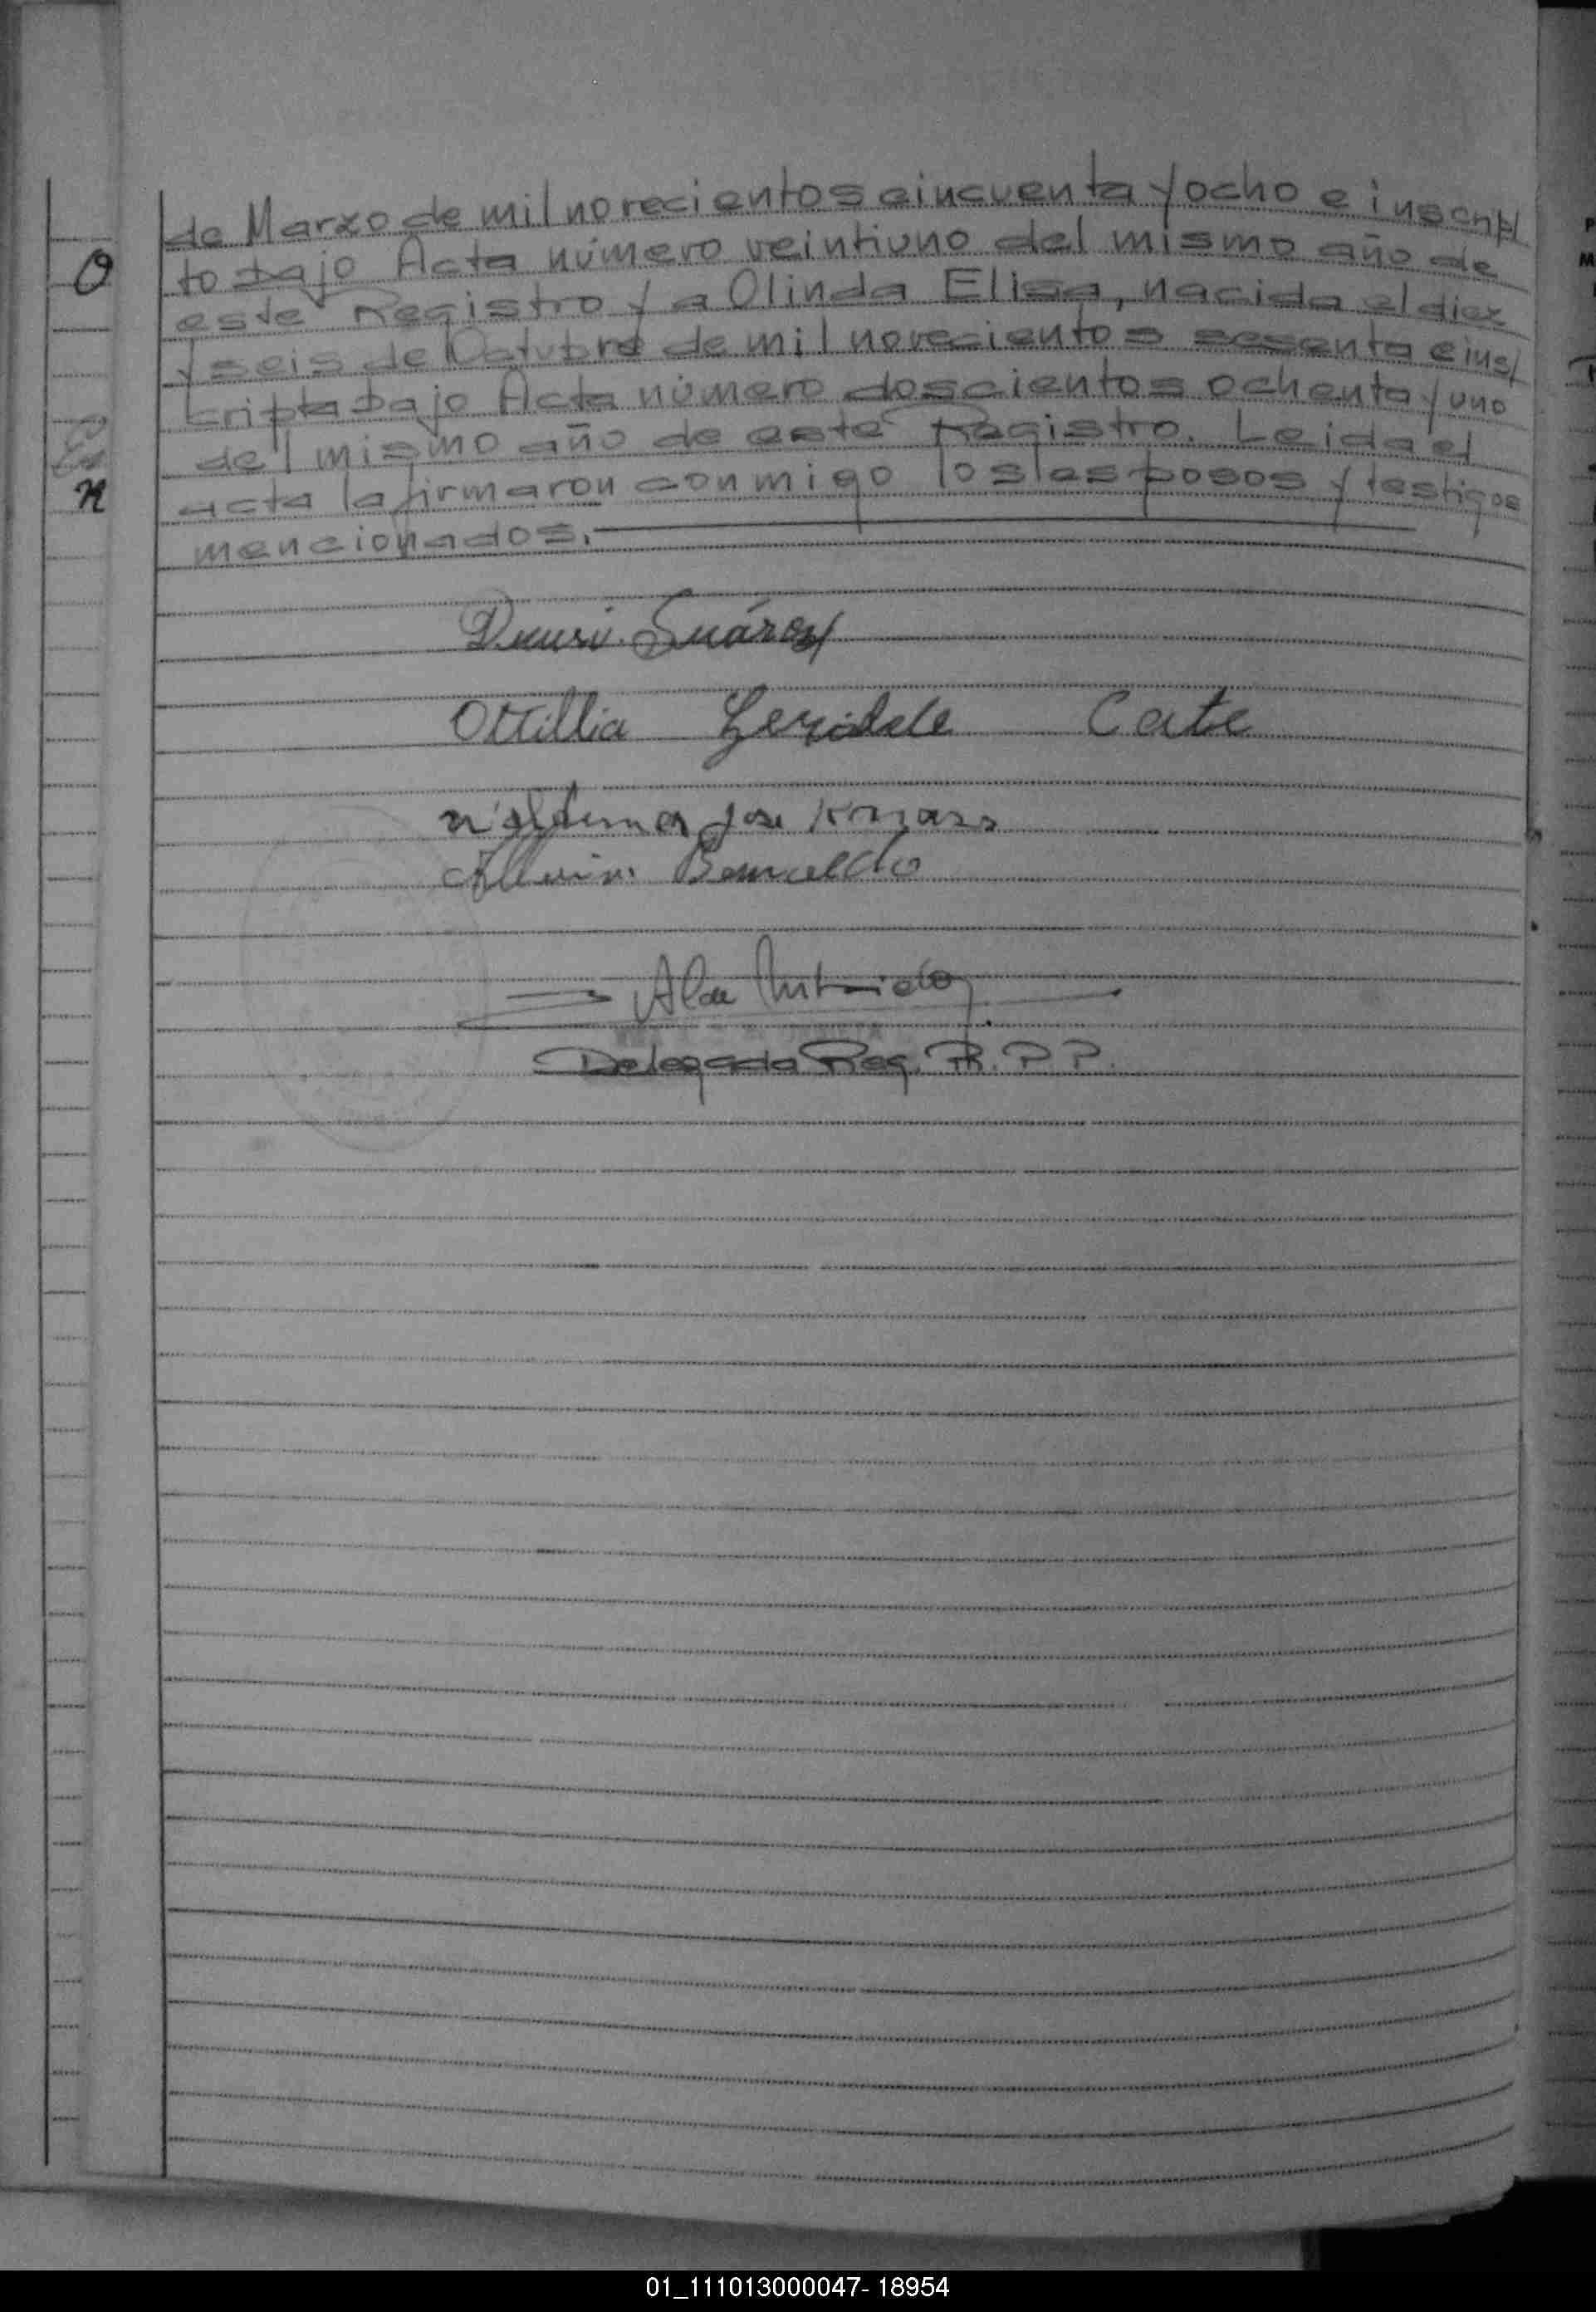 de Marzo de mil novecientos cincuenta y ocho e inscrip/
to bajo Acta número veintiuno del mismo año de
este Registro y a Olinda Elisa, nacida el diez
y seis de Octubre de mil novecientos sesenta e ins/
cripta bajo Acta número doscientos ochenta y uno
del mismo año de este Registro. Leida el
acta la firmaron conmigo los esposos y testigos
mencionados.
Suárez
Ottillia Cate
Jose
Delegada Reg. P. P.
01_111013000047- 18954